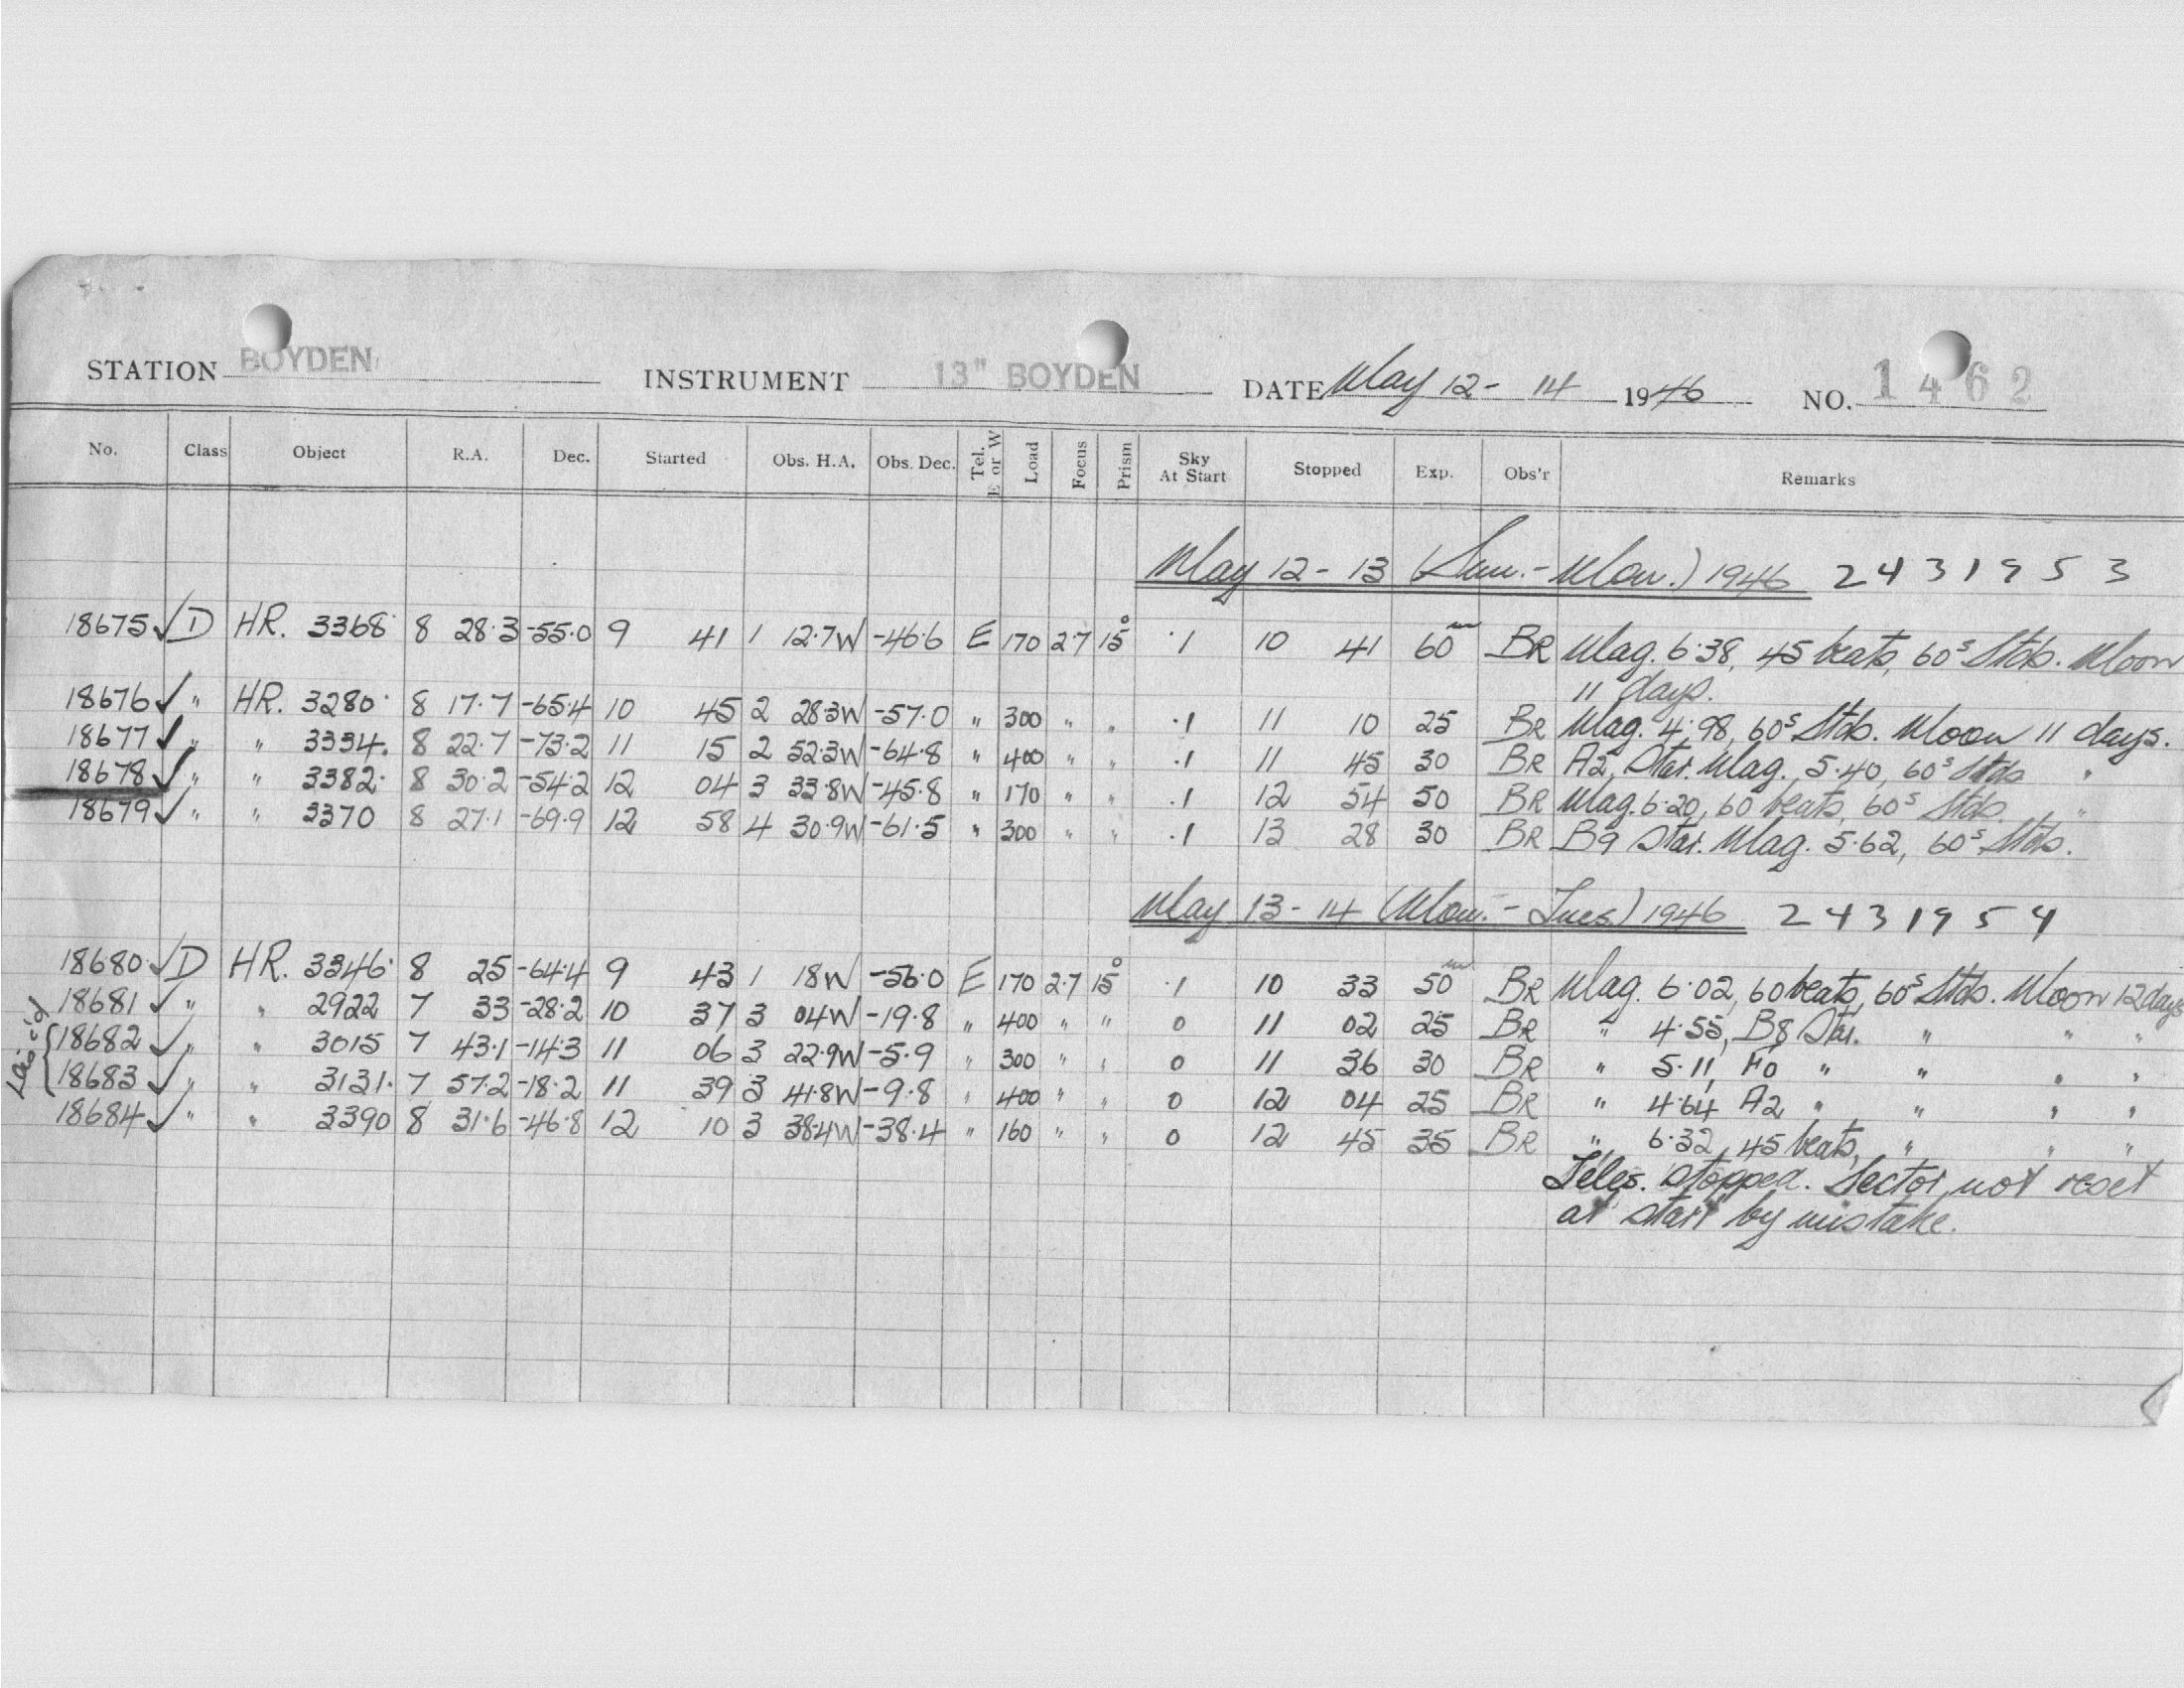 STATION BOYDEN INSTRUMENT 13" BOYDEN DATE May 12 - 14 1946 NO. 1462
No. Class Object R.A. Dec. Started Obs. H.A. Obs. Dec. Tel. E or W Load Focus Prism Sky At Start Stopped Exp. Obs'r Remarks
May 12 - 13 (Sun. - Mon.) 1946 2431953
18675 ✓ D HR. 3368 8 28.3 -55.0 9 41 1 12.7W -46.6 E 170 2.7 15° .1 10 41 60m BR Mag. 6.38, 45 beats, 60s Stds. Moon
11 days.
18676 ✓ " HR. 3280 8 17.7 -65.4 10 45 2 28.3W -57.0 " 300 " " .1 11 10 25 BR Mag. 4.98, 60s Stds. Moon 11 days.
18677 ✓ " " 3334. 8 22.7 -73.2 11 15 2 52.3W -64.8 " 400 " " .1 11 45 30 BR A2, Star. Mag. 5.40, 60s Stds "
18678 ✓ " " 3382. 8 30.2 -54.2 12 04 3 33.8W -45.8 " 170 " " .1 12 54 50 BR Mag. 6.20, 60 beats, 60s Stds. "
18679 ✓ " " 3370 8 27.1 -69.9 12 58 4 30.9W -61.5 " 300 " " .1 13 28 30 BR B9 Star. Mag. 5.62, 60s Stds.
May 13 - 14 (Mon. - Tues.) 1946 2431954
18680 ✓ D HR. 3346 8 25 -64.4 9 43 1 18W -56.0 E 170 2.7 15° .1 10 33 50m BR Mag. 6.02, 60 beats, 60s Stds. Moon 12 days
18681 ✓ " " 2922 7 33 -28.2 10 37 3 04W -19.8 " 400 " " 0 11 02 25 BR " 4.55, B8 Star. " " "
18682 ✓ " " 3015 7 43.1 -14.3 11 06 3 22.9W -5.9 " 300 " " 0 11 36 30 BR " 5.11, F0 " " " "
18683 ✓ " " 3131. 7 57.2 -18.2 11 39 3 41.8W -9.8 " 400 " " 0 12 04 25 BR " 4.64 A2 " " " "
18684 ✓ " " 3390 8 31.6 -46.8 12 10 3 38.4W -38.4 " 160 " " 0 12 45 35 BR " 6.32, 45 beats, " " "
Teles. stopped. Sector not reset
at start by mistake.